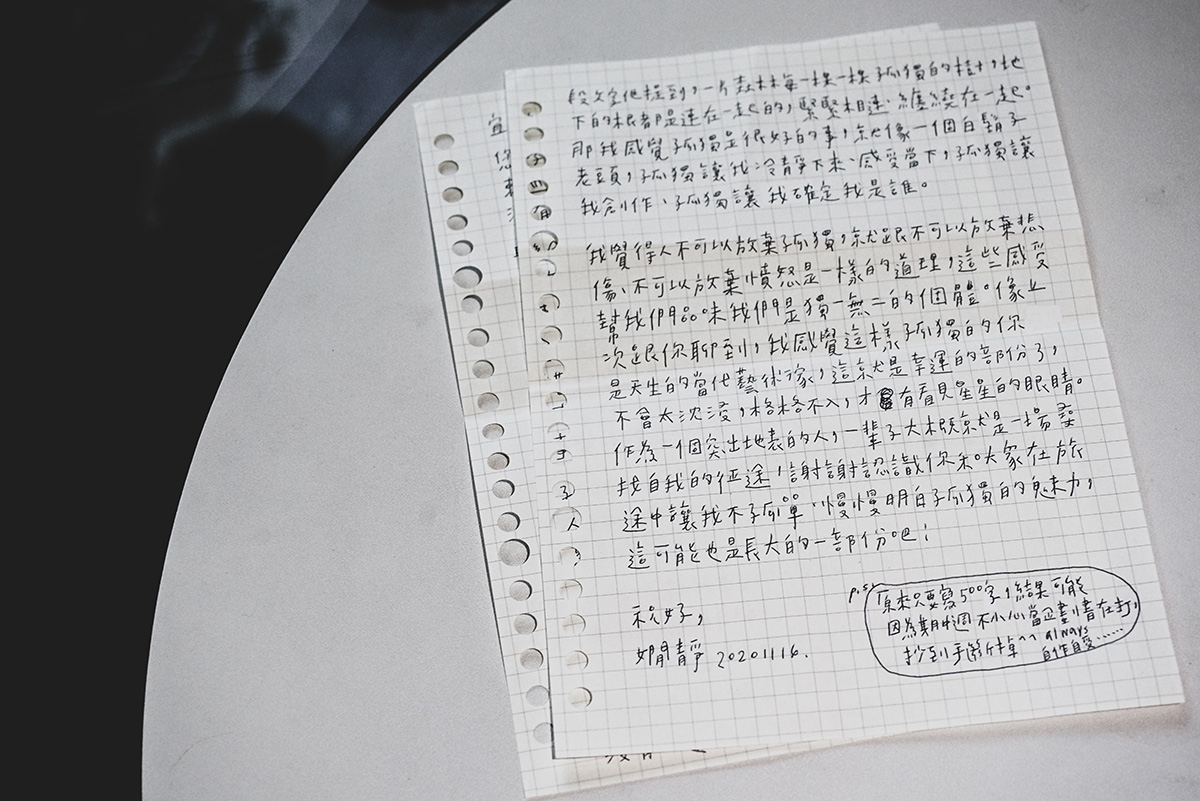 段文字他提到，一片森林每一棵一棵孤獨的樹，地
下的根都是連在一起的，緊緊相連、纏繞在一起。
那我感覺孤獨是很好的事，他像一個白鬍子
老頭，孤獨讓我冷靜下來、感受當下，孤獨讓
我創作、孤獨讓我確定我是誰。
我覺得人不可以放棄孤獨，就跟不可以放棄悲
傷、不可以放棄憤怒是一樣的道理，這些感受
幫我們品味我們是獨一無二的個體。像上
次跟你聊到，我感覺這樣孤獨的你
是天生的當代藝術家，這就是幸運的部份了，
不會太沈浸，格格不入，才有看見星星的眼睛。
作為一個突出地表的人，一輩子大概就是一場尋
找自我的征途，謝謝認識你和大家在旅
途中讓我不孤單，慢慢明白孤獨的魅力，
這可能也是長大的一部份吧！
祝好，
嫺靜 20201116.
p.s.
原來只要寫500字，結果可能
因為期中週不小心當企劃書在打，
抄到手斷掉^^ always
自作自受......
宜
您